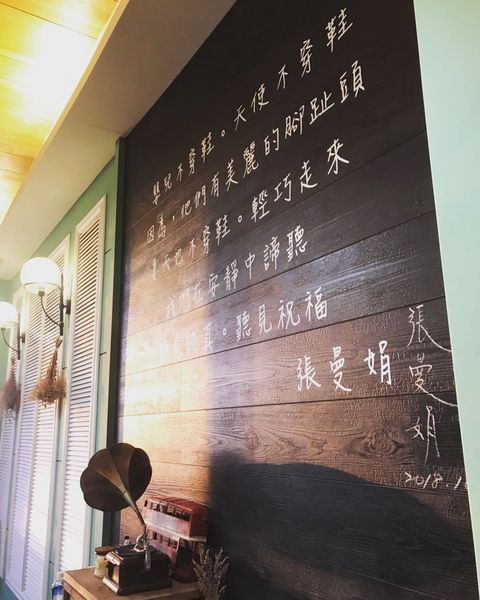 嬰兒不穿鞋。天使不穿鞋
因為，他們有美麗的腳趾頭
夏天也不穿鞋。輕巧走來
我們在安靜中諦聽
。聽見祝福
張曼娟
張曼娟
2018.1